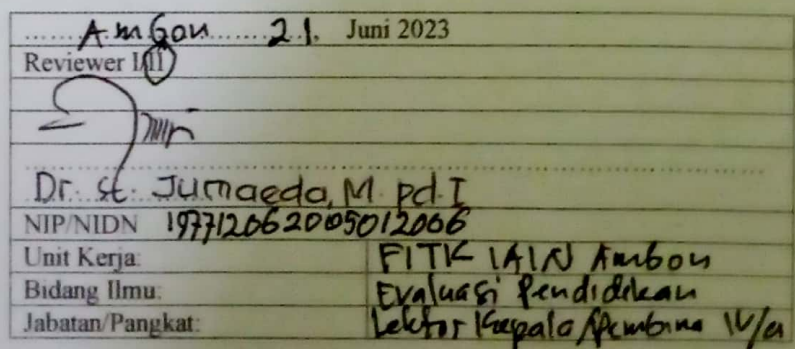 Ambon 21, Juni 2023
Reviewer I/II
Dr. St. Jumaeda, M.Pd.I
NIP/NIDN 197712062005012006
Unit Kerja: FITK IAIN Ambon
Bidang Ilmu: Evaluasi Pendidikan
Jabatan/Pangkat: Lektor Kepala/Pembina IV/a